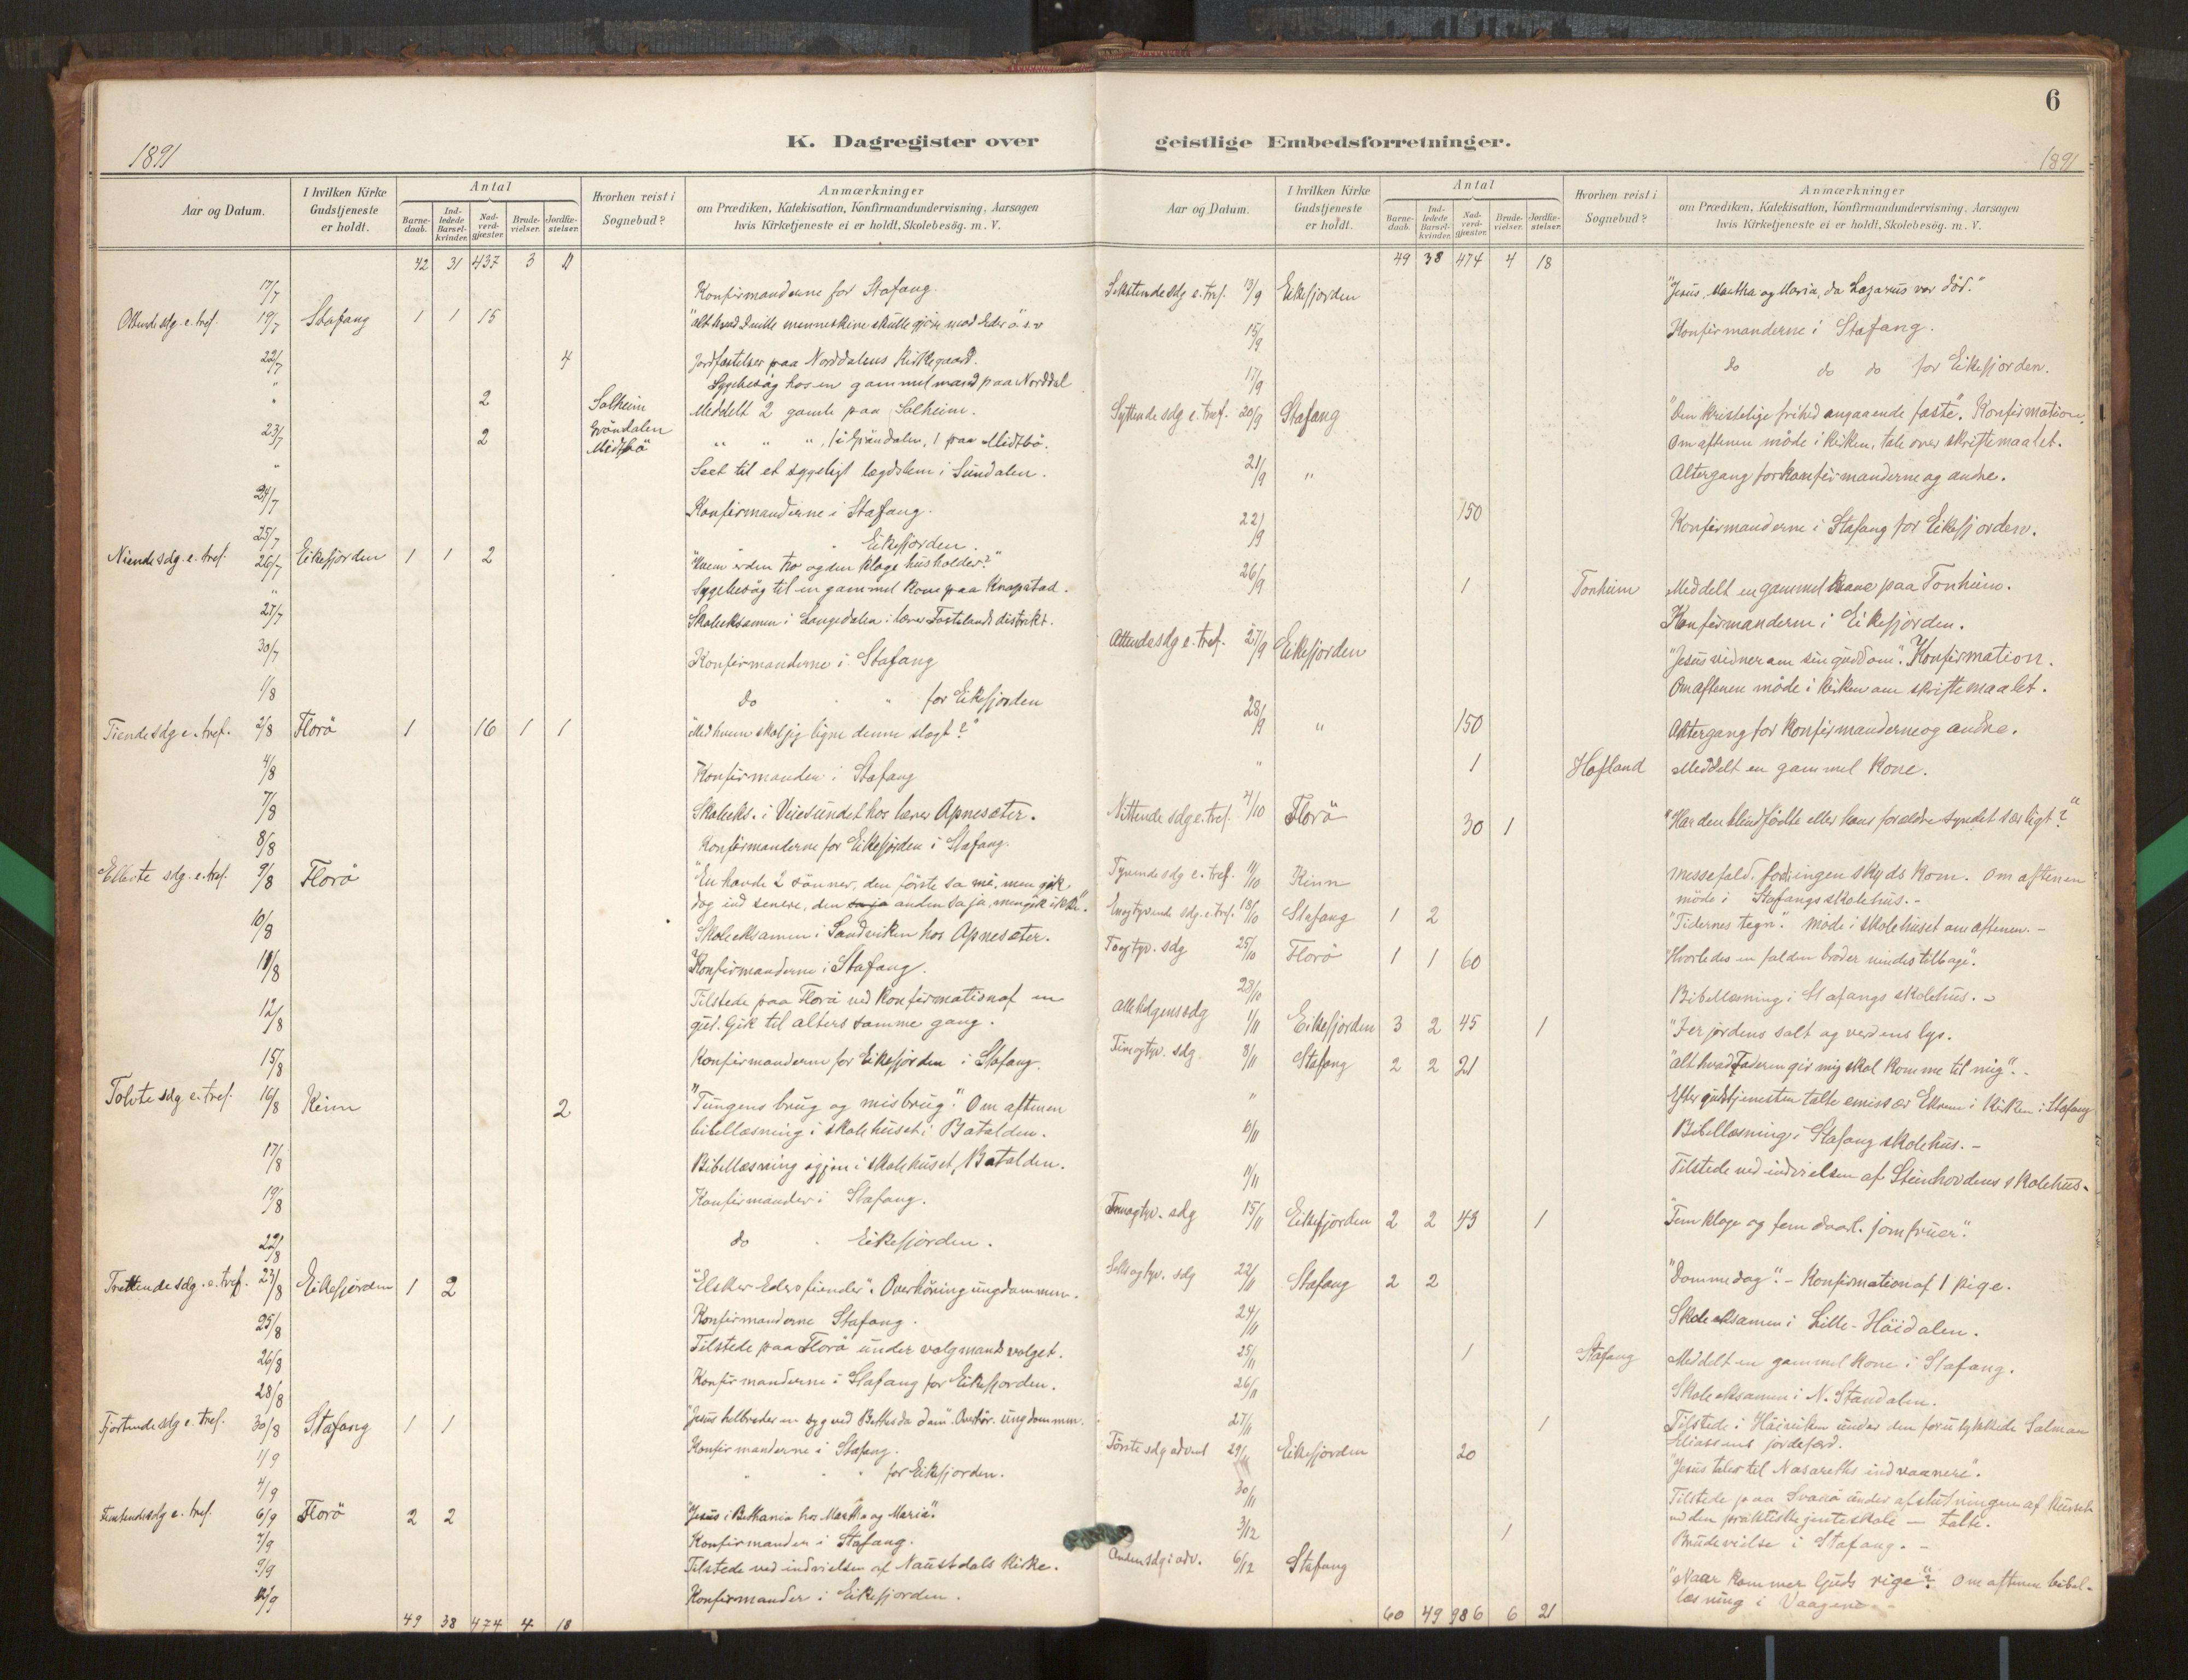 6
K. Dagregister over geistlige Embedsforretninger.
1891
1891
Aar og Datum. I hvilken Kirke Gudstjeneste er holdt. Antal Barnedaab. Indledede Barselkvinder. Nadverdgjæster. Brudevielser. Jordfæstelser. Hvorhen reist i Sognebud? Anmærkninger om Prædiken, Katekisation, Konfirmandundervisning, Aarsagen hvis Kirketjeneste ei er holdt, Skolebesög. m. V.
42 31 437 3 11
17/7 Konfirmanderne for Stafang.
Ottende sdg. e. tref. 19/7 Stafang 1 1 15 "Alt hvad I ville menneskene skulle gjöre mod Eder o" s.v
22/7 4 Jordfæstelser paa Norddalens Kirkegaard.
" Sygebesög hos en gammel mand paa Norddal
" 2 Solheim Meddelt 2 gamle paa Solheim.
23/7 2 Gröndalen Midtbö " " ", 1 i Gröndalen, 1 paa Midtbö.
" Seet til et sygeligt lægdslem i Sundalen.
24/7 Konfirmanderne i Stafang.
25/7 " " Eikefjorden.
Niende sdg. e. tref. 26/7 Eikefjorden 1 1 2 "Hvem er den tro og den kloge husholder?"
" Sygebesög til en gammel kone paa Knapstad.
27/7 Skoleeksamen i Langedalen i lærer Fostelands distrikt.
30/7 Konfirmanderne i Stafang
1/8 do " " for Eikefjorden
Tiende sdg e. tref. 2/8 Florö 1 16 1 1 "Med hvem skal jeg ligne denne slægt?"
4/8 Konfirmander i Stafang
7/8 Skoleeks. i Veiesundet hos lærer Apnesæter.
8/8 Konfirmanderne for Eikefjorden i Stafang.
Ellevte sdg. e. tref. 9/8 Florö "En havde 2 sönner, den förste sa nei, men gik
dog ind senere, den sa ja anden sa ja, men gik ikke".
10/8 Skoleeksamen i Sandviken hos Apnesæter.
11/8 Konfirmanderne i Stafang.
12/8 Tilstede paa Florö ved konfirmation af en
gut. Gik til alters samme gang.
15/8 Konfirmanderne for Eikefjorden i Stafang.
Tolvte sdg e. tref. 16/8 Kinn 2 "Tungens brug og misbrug." Om aftenen
bibellæsning i skolehuset i Batalden.
17/8 Bibellæsning igjen i skolehuset, Batalden.
19/8 Konfirmander i Stafang.
22/8 do " Eikefjorden.
Trettende sdg. e. tref. 23/8 Eikefjorden 1 2 "Elsker Eders fiender". Overhöring ungdommen.
25/8 Konfirmanderne Stafang.
26/8 Tilstede paa Florö under valgmandsvalget.
28/8 Konfirmanderne i Stafang for Eikefjorden.
Fjortende sdg e. tref. 30/8 Stafang 1 1 "Jesus helbreder en syg ved Bethesda dam". Overhör. ungdommen.
1/9 Konfirmanderne i Stafang.
4/9 " " " for Eikefjorden.
Femtende sdg e. tref. 6/9 Florö 2 2 "Jesus i Bethania hos Martha og Maria".
7/9 Konfirmander i Stafang.
9/9 Tilstede ved indvielsen af Naustdals kirke.
12/9 Konfirmander i Eikefjorden.
49 38 474 4 18
Aar og Datum. I hvilken Kirke Gudstjeneste er holdt. Antal Barnedaab. Indledede Barselkvinder. Nadverdgjæster. Brudevielser. Jordfæstelser. Hvorhen reist i Sognebud? Anmærkninger om Prædiken, Katekisation, Konfirmandundervisning, Aarsagen hvis Kirketjeneste ei er holdt, Skolebesög. m. V.
49 38 474 4 18
Sekstende sdg e. tref. 13/9 Eikefjorden "Jesus, Martha og Maria, da Lazarus var död."
15/9 Konfirmanderne i Stafang.
17/9 do do do for Eikefjorden.
Syttende sdg e. tref. 20/9 Stafang "Den kristelige frihed angaaende faste". Konfirmation.
Om aftenen möde i kirken, tale over skriftemaalet.
21/9 " 150 Altergang for konfirmanderne og andre.
22/9 Konfirmanderne i Stafang for Eikefjorden.
26/9 1 Tonheim Meddelt en gammel kone paa Tonheim.
Konfirmanderne i Eikefjorden.
Attende sdg e. tref. 27/9 Eikefjorden "Jesus vidner om sin guddom". Konfirmation.
Om aftenen möde i kirken om skriftemaalet.
28/9 " 150 Altergang for konfirmanderne og andre.
" 1 Hofland Meddelt en gammel kone.
Nittende sdg e. tref. 4/10 Florö 30 1 "Har den blindfödte eller hans forældre syndet særligt?"
Tyvende sdg e. tref. 11/10 Kinn Messefald, fordi ingen skyds kom. Om aftenen
möde i Stafangs skolehus.-
Enogtyvende sdg. e. tref. 18/10 Stafang 1 2 "Tidernes tegn". Möde i skolehuset om aftenen.-
Toogtyv. sdg 25/10 Florö 1 1 60 "Hvorledes en falden broder vindes tilbage".
28/10 Bibellæsning i Stafangs skolehus.-
Allehelgens sdg 1/11 Eikefjorden 3 2 45 1 "I er jordens salt og verdens lys.
Fireogtyv. sdg. 8/11 Stafang 2 2 21 "Alt hvad Faderen gir mig skal komme til mig".
" Efter gudstjenesten talte emissær Ekrene i kirken i Stafang
Bibellæsning i Stafang skolehus.-
11/11 Tilstede ved indvielsen af Steinhovdens skolehus.
Femogtyv. sdg 15/11 Eikefjorden 2 2 43 1 "Fem kloge og fem daarl. jomfruer".
Seksogtyv. sdg 22/11 Stafang 2 2 "Dommedag".- Konfirmation af 1 pige.
24/11 Skoleeksamen i Lille-Höidalen.
25/11 1 Stafang Meddelt en gammel kone i Stafang.
26/11 Skoleeksamen i N. Standalen.
27/11 1 Tilstede i Höiviken under den forulykkede Salman
Eliassens jordefærd.
Förste sdg advent 29/11 Eikefjorden 20 "Jesus taler til Nasareths indvaanere".
30/11 Tilstede paa Svanö under afslutningen af kurset
ved den praktiske jenteskole — talte.
3/12 1 Brudevielse i Stafang.-
Anden sdg i adv. 6/12 Stafang "Naar kommer Guds rige"? Om aftenen bibel-
læsning i Vaagene.-
60 49 986 6 21